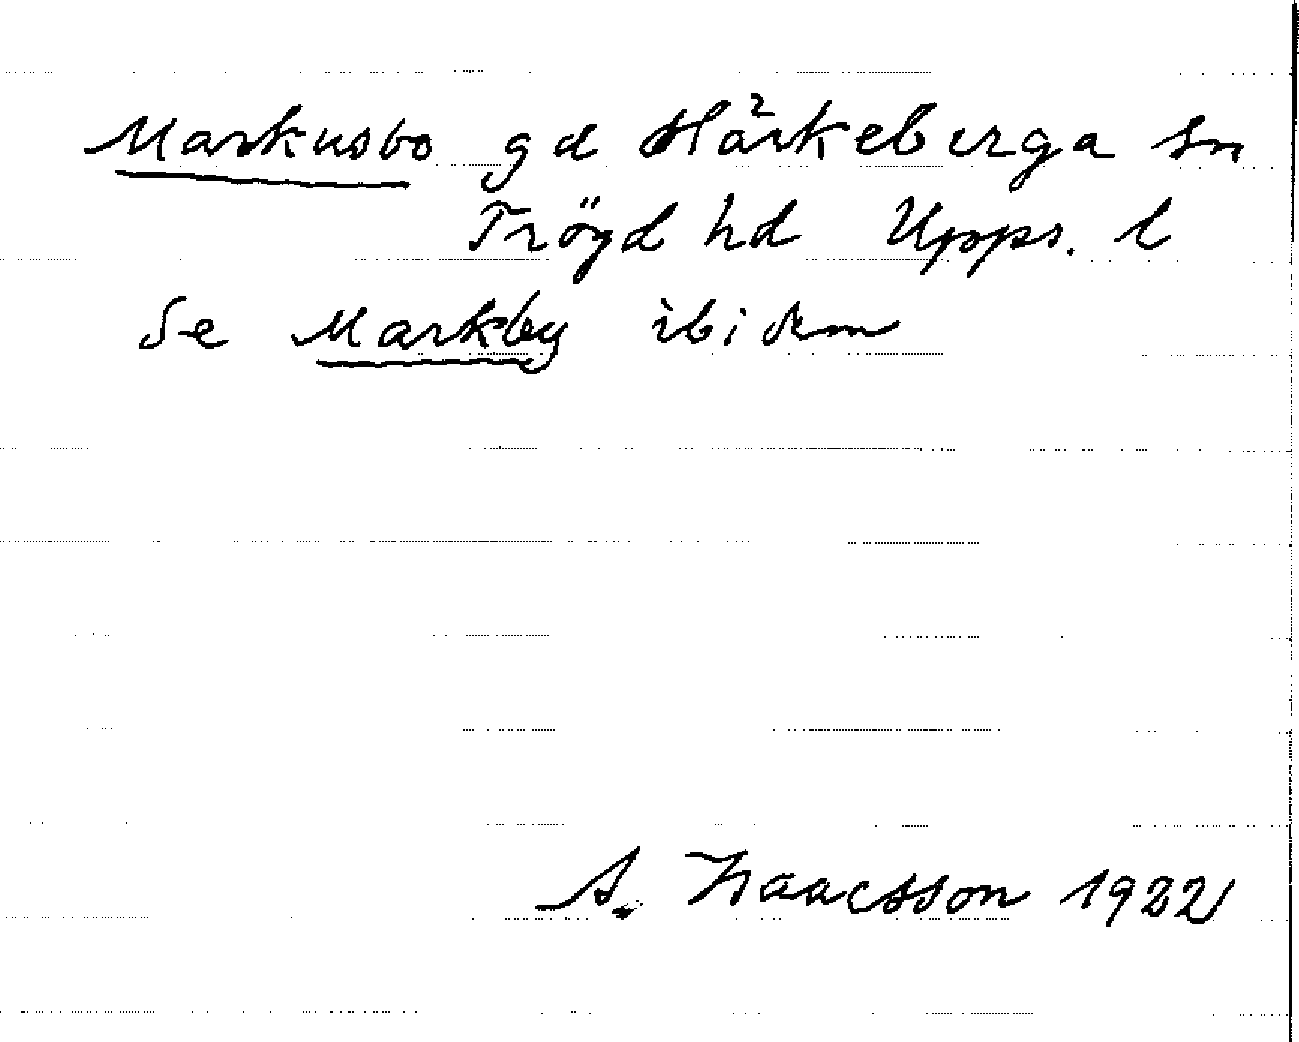 Markusbo gd Härkeberga sn
Tröyd hd Upps. l
Se Markby ibidem
A. Isaacsson 1922